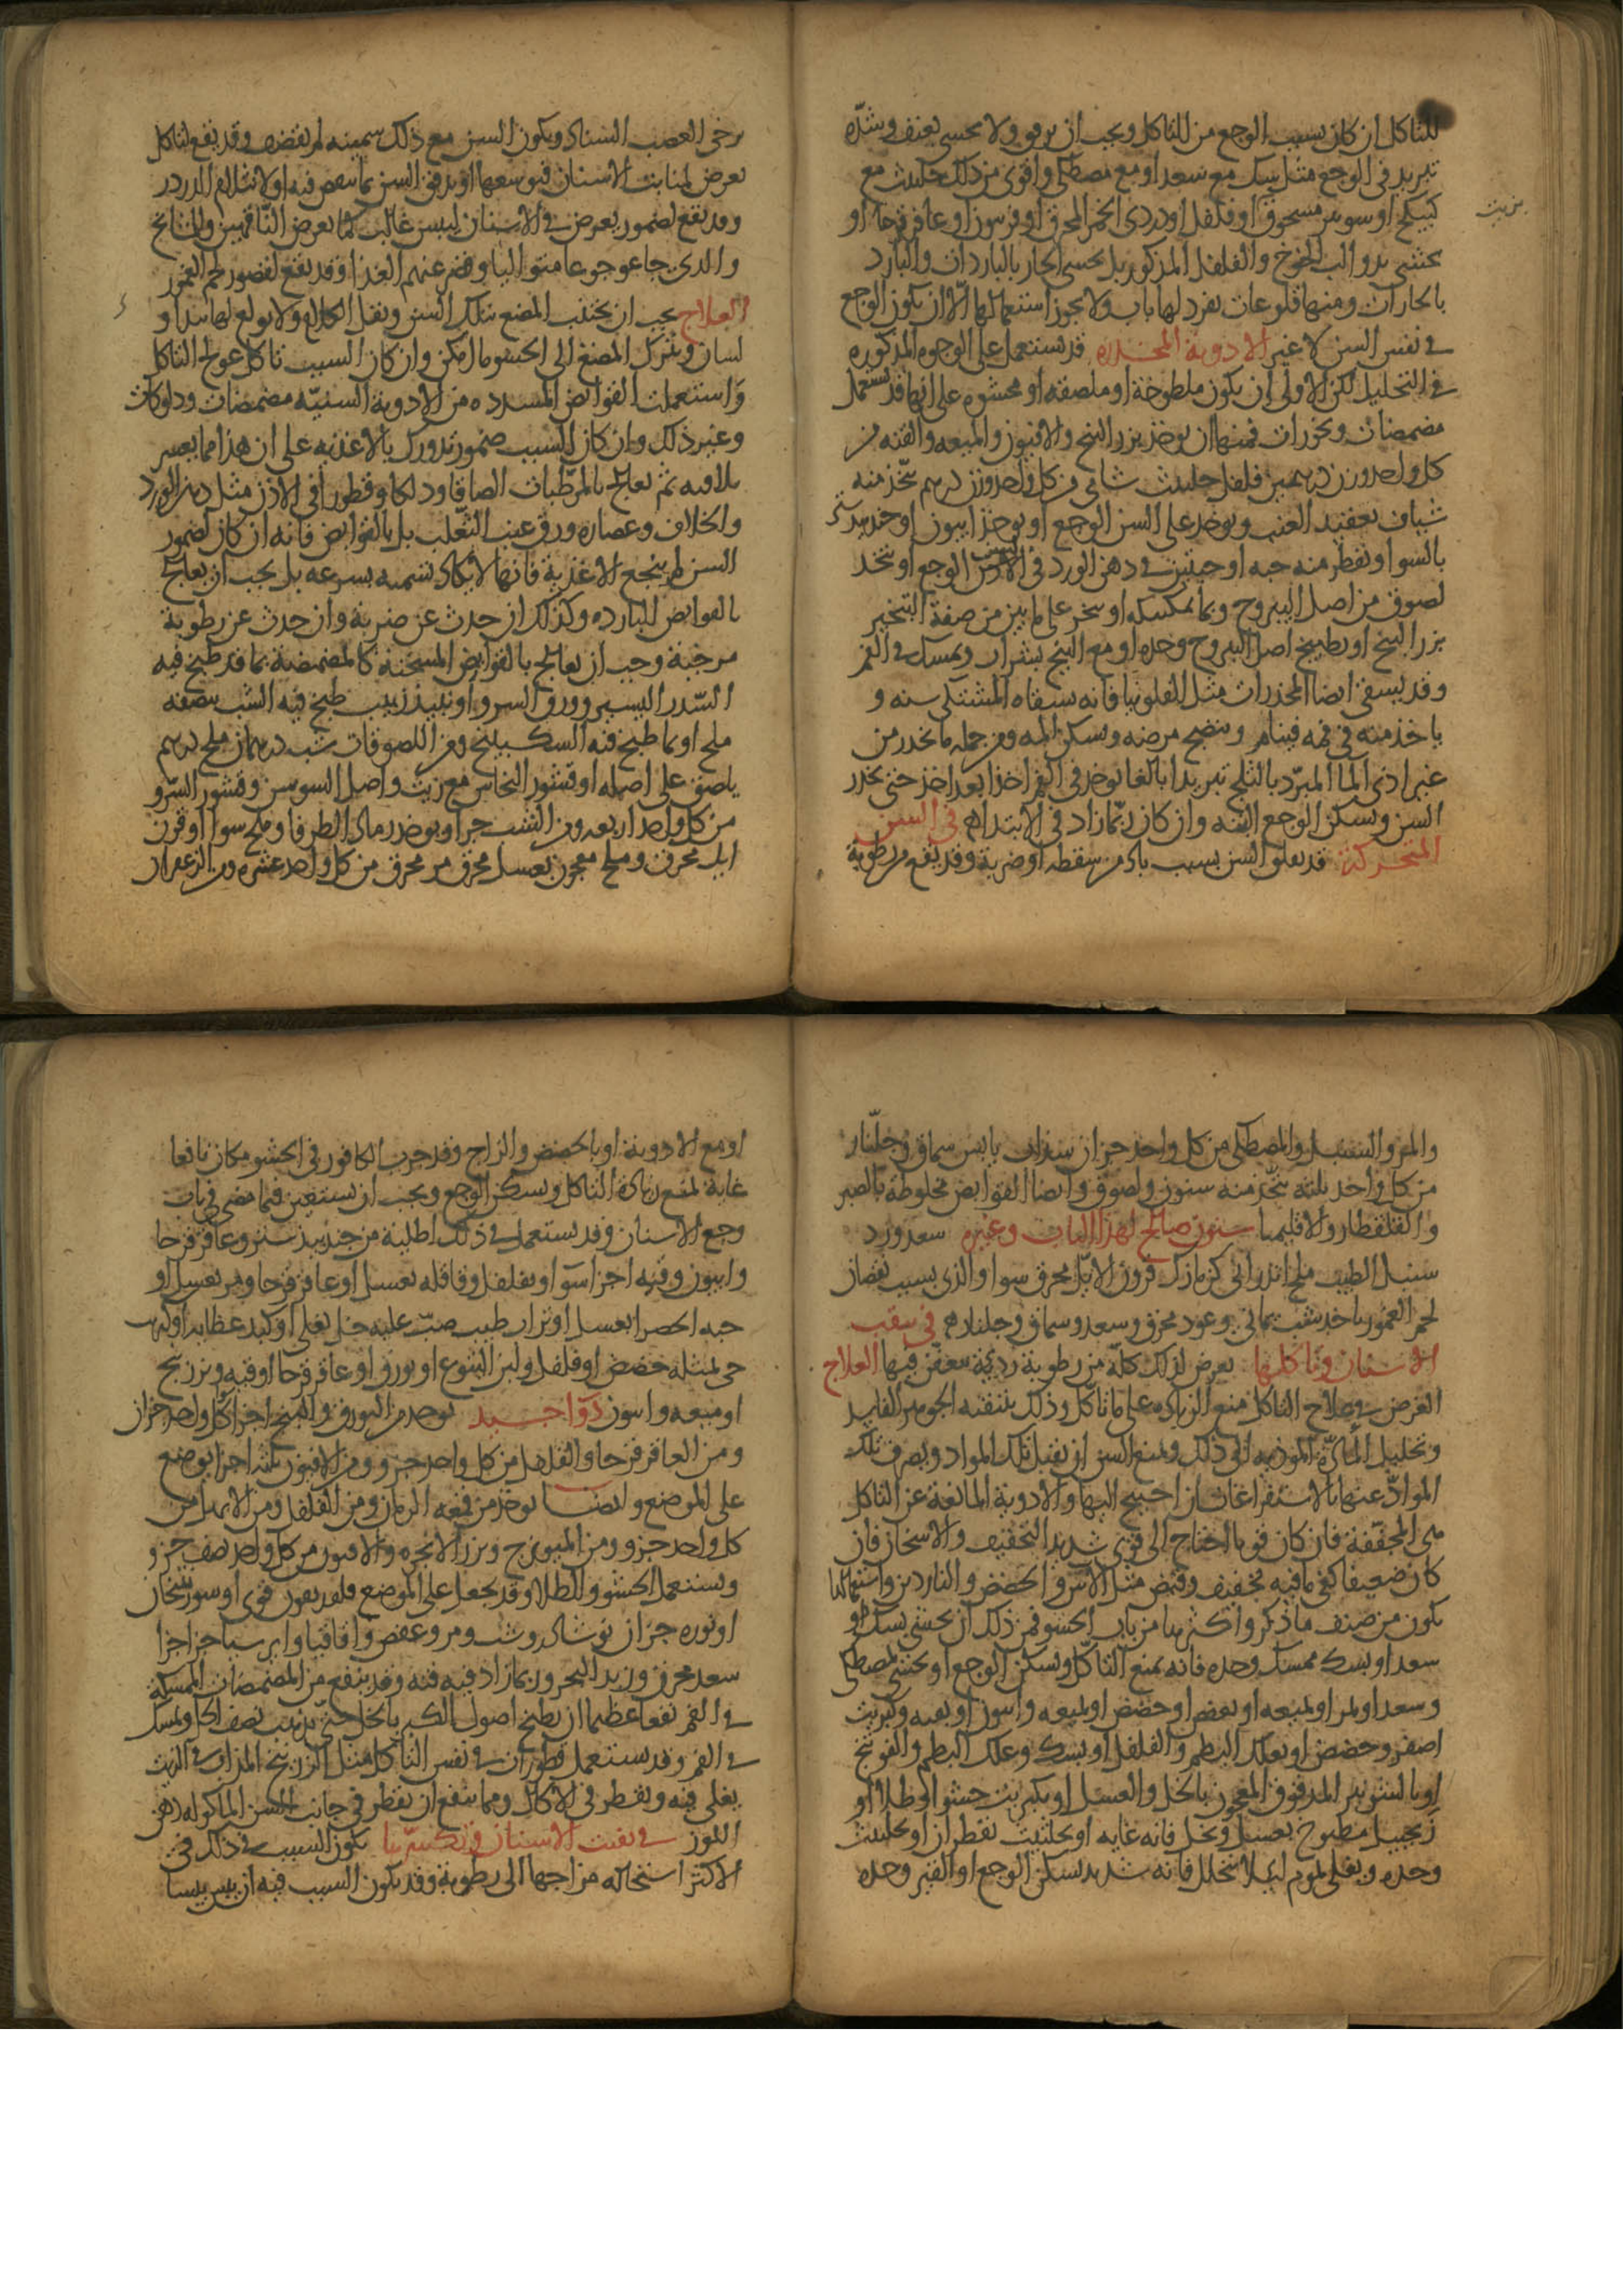 للتاكل ان كان سبب الوجع من التاكل ويجب ان يرفق ولا يحشى بعنف وشدة
تزيد في الوجع مثل سك مع سعد او مع مصطكى واقوى من ذلك حلتيت مع
كبيكج او سوس مسحوق او فلفل او دردى الخمر المحرق او فرسون او عاقرقرحا او
يحشى بدوا لب الخوخ والفلفل المذكور بل يحشى الحار بالباردات والبارد
بالحارات ومنها قلوعات نفرد لها باب ولا يجوز استعمالها الا ان يكون الوجع
في نفس السن لا غير الادوية المخدرة قد تستعمل على الوجوه المذكوره
في التحليل لكن الاولى ان يكون ملطوخة او ملصقه او محشوه على انها قد تستعمل
مضمضات وبخورات فمنها ان يوخذ بزر البنج والافيون والميعه والقنه من
كل واحد وزن درهمين فلفل حلتيت شامي من كل واحد وزن درهم يتخذ منه
شياف بعقيد العنب ويوضع على السن الوجع او يوخذ افيون او جندبيدستر
بالسوا ويقطر منه حبه او حبتين في دهن الورد في الاذن الوجع او يتخذ
لصوق من اصل اليبروح وبما يمسكه او يبخر على ما بين من صفة التبخير
بزر البنج او يطبخ اصل اليبروح وحده او مع البنج بشراب ويمسك في الفم
وقد يسقى ايضا المخدرات مثل الفلونيا فانه يسقاه المشتكى سنه و
ياخذ منه في فمه فينام وينضج مرضه ويسكن المه ومن جمله ما يخدر من
غير اذى الما المبرد بالثلج تبريدا بالغا يوخذ في الفم اخذا بعد اخذ حتى يخدر
السن ويسكن الوجع البته وان كان ربما زاد في الابتداء في السن
المتحركة قد يقلق السن بسبب باد من سقطه او ضربة وقد يقع من رطوبة
يرخى العصب الشناد ويكون السن مع ذلك سمينه لم يقضف وقد يقع لتاكل
يعرض لمنابت الاسنان فيوسعها او يدق السن بما ينقص فيه او لانثلام الدردر
وقد يقع لضمور يعرض في الاسنان ليبس غالب كما يعرض للناقهين والمشايخ
والذى جاعو جوعا متواليا وقصر عنهم الغذا وقد يقع لقصور لحم العمور
العلاج يجب ان يجتنب المضغ بتلك السن ويقل الكلام ولا يولع لها بيد او
لسان ويترك المضغ الى الحسو ما امكن وان كان السبب تاكل عولج التاكل
واستعملت القوابض المسدده من الادوية السنيه مضمضات ودلوكات
وغير ذلك وان كان السبب ضمور تدورك بالاغذيه على ان هذا مما يعسر
تلافيه ثم يعالج بالمرطبات الصاقا ودلكا وقطورا في الاذن مثل دهن الورد
والخلاف وعصاره ورق عنب الثعلب بل بالقوابض فانه ان كان لضمور
السن لم ينجع الاغذية فانها لا يكاد تسمنه بسرعه بل يجب ان يعالج
بالقوابض البارده وكذلك ان حدث عن ضربة وان حدث عن رطوبة
مرخية وجب ان يعالج بالقوابض المسخنة كالمضمضة بما قد طبخ فيه
السدر اليسير وورق السرو او نبيذ زبيب طبخ فيه الشب بنصفه
ملح او بما طبخ فيه السكبينج ومن اللصوقات شب درهمان ملح درهم
يلصق على اصله او قشور النحاس مع زيت واصل السوسن وقشور السرو
من كل واحد اربعه ومن الشب جزا ويوخذ رماد الطرفا وملح سوا او قرن
ايل محرق وملح معجون بعسل محرق مر محرق من كل واحد عشره ومن الزعفران
والمر والسنبل والمصطكى من كل واحد جزان سذاب يابس سماق وجلنار
من كل واحد ثلثه يتخذ منه سنون ولصوق وايضا القوابض مخلوطة بالصبر
والقلقطار والاقليميا سنون صالح لهذا الباب وغيره سعد ورد
سنبل الطيب ملح اندراني كزمازك قرون الايل محرق سوا والذى بسبب نقصان
لحم العمور ياخذ شب يماني وعود محرق وسعد وسماق وجلنار في ثقب
الاسنان وتاكلها يعرض ذلك كله من رطوبة ردية تعفن فيها العلاج
الغرض في علاج التاكل منع الزياده على ما تاكل وذلك بتنقيه الجوهر الفاسد
وتحليل المادة المؤديه الى ذلك ويمنع السن ان يقبل تلك المواد ويصرف تلك
المواد عنها بالاستفراغات ان احتيج اليها والادوية المانعة عن التاكل
هي المجففة فان كان قويا احتاج الى قوى شديد التجفيف والاسخان فان
كان ضعيفا كفى ما فيه تجفيف وقبض مثل الآس والحضض والناردين واستعمالها
يكون من صنف ما ذكر واكثرها من باب الحشو فمن ذلك ان يحشى بسك او
سعد او بسك ممسك وحده فانه يمنع التاكل ويسكن الوجع او يحشى بمصطكى
وسعد او بمر او بميعه او بعفص او حضض او بميعه وافيون او بقنه وكبريت
اصفر وحضض او بعلك البطم والفلفل او بسك وعلك البطم والفوتنج
او بالشونيز المدقوق المعجون بالخل والعسل او بكبريت حشوا او طلا او
زنجبيل مطبوخ بعسل وخل فانه غايه او بحلتيت بقطران او بحلتيت
وحده ويغطى بموم لئلا يتحلل فانه شديد تسكين الوجع او القير وحده
او مع الادوية او بالحضض والزاج وقد جرب الكافور في الحشو فكان نافعا
غاية لمنع زيادة التاكل ويسكن الوجع ويجب ان يستعين فيما مضى في باب
وجع الاسنان وقد يستعمل في ذلك اطلية من جندبيدستر وعاقرقرحا
وافيون وقنه اجزا سوا او بفلفل وقاقله بعسل او عاقرقرحا ومر بعسل او
حبه الخضرا بعسل او تراب طيب صب عليه خل يغلى او كبد عظايه او كبريت
حي لمثله حضض او فلفل ولبن اليتوع او بورق او عاقرقرحا او قنه وبزر بنج
او ميعه وافيون دوا جيد يوخذ من البورق والبنج اجزا كل واحد جزان
ومن العاقرقرحا والفلفل من كل واحد جزو ومن الافيون ثلثه اجزا يوضع
على الموضع وايضا يوخذ من فقه الرمان ومن الفلفل ومن الابهل من
كل واحد جزو ومن الميويزج وبزر الانجره والافيون من كل واحد نصف جزو
ويستعمل الحشو والطلا وقد يجعل على الموضع فلدفيون قوى او سورنجان
او نوره جزان نوشادر وشب ومر وعفص واقاقيا وايرسا جزا جزا
سعد محرق وزبد البحر وربما زاد فيه قنه وقد ينفع من المضمضات الممسكة
في الفم نفعا عظيما ان يطبخ اصول الكبر بالخل حتى يذهب نصف الخل ويمسك
في الفم وقد يستعمل قطورات في نفس التاكل مثل الزرنيخ المذاب في الزيت
يغلى فيه ويقطر في الاكال ومما ينفع ان يقطر في جانب السن الماكوله دهن
اللوز في تفتت الاسنان وتكسرها يكون السبب في ذلك في
الاكثر استحاله مزاجها الى رطوبة وقد يكون السبب فيه ان ييبس يبسا